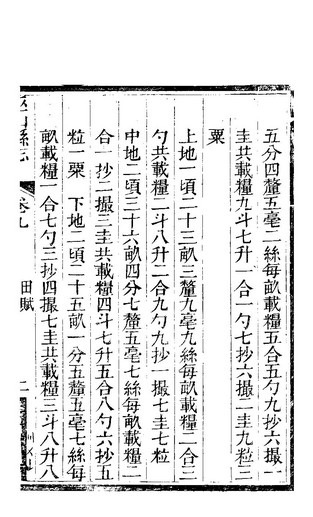 五分四釐五毫二絲每畝載糧五合五勺九抄六撮一
圭共載糧九斗七升一合一勺七抄六撮二圭九粒三
粟
上地一頃二十三畝三釐九毫九絲每畝載糧二合三
勺共載糧二斗八升二合九勺九抄一撮七圭七粒
中地二頃三十六畝四分七釐五毫七絲每畝載糧二
合一抄二撮三圭共載糧四斗七升五合八勺六抄五
粒一粟 下地二頃二十五畝一分五釐五毫七絲每
畝載糧一合七勺三抄四撮七圭共載糧三斗八升八
縣志
卷九
田賦
二